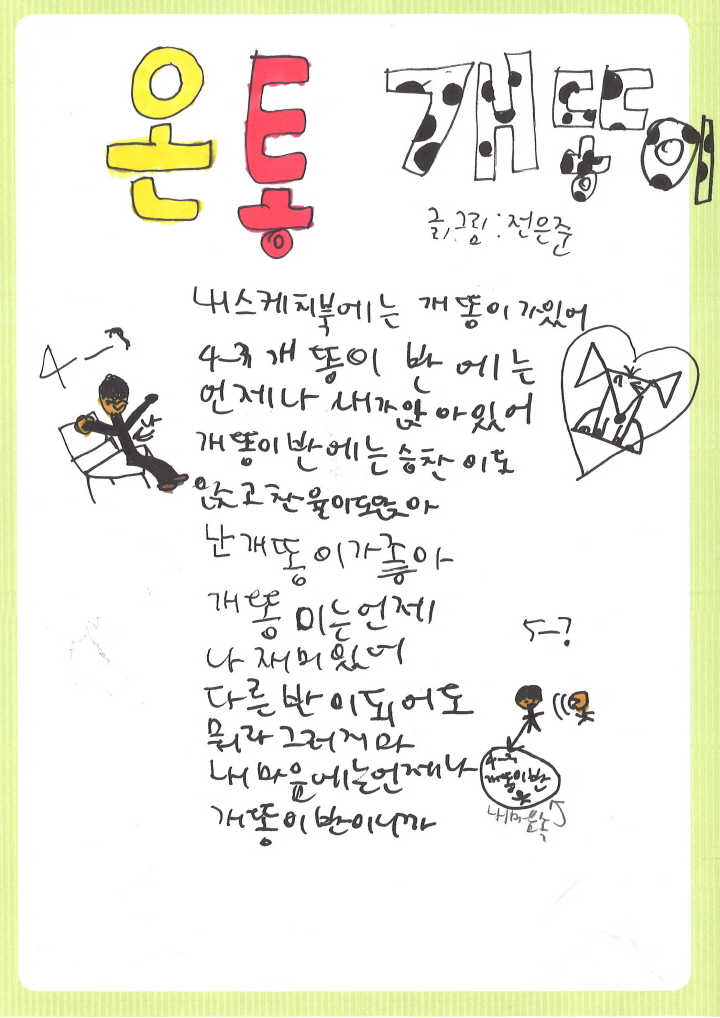 온통 개똥이
글,그림:전은준
내 스케치북에는 개똥이가있어
4-3 개똥이 반에는
언제나 내가 앉아있어
개똥이반에는 승찬이도
앉고 찬율이도 앉아
난 개똥이가 좋아
개똥이는 언제
나 재미있어
다른 반이 되어도
뭐라 그러지마
내 마음에는 언제나
개똥이반이니까
4-3
나
5-?
4-3
개똥이반
내 마음속